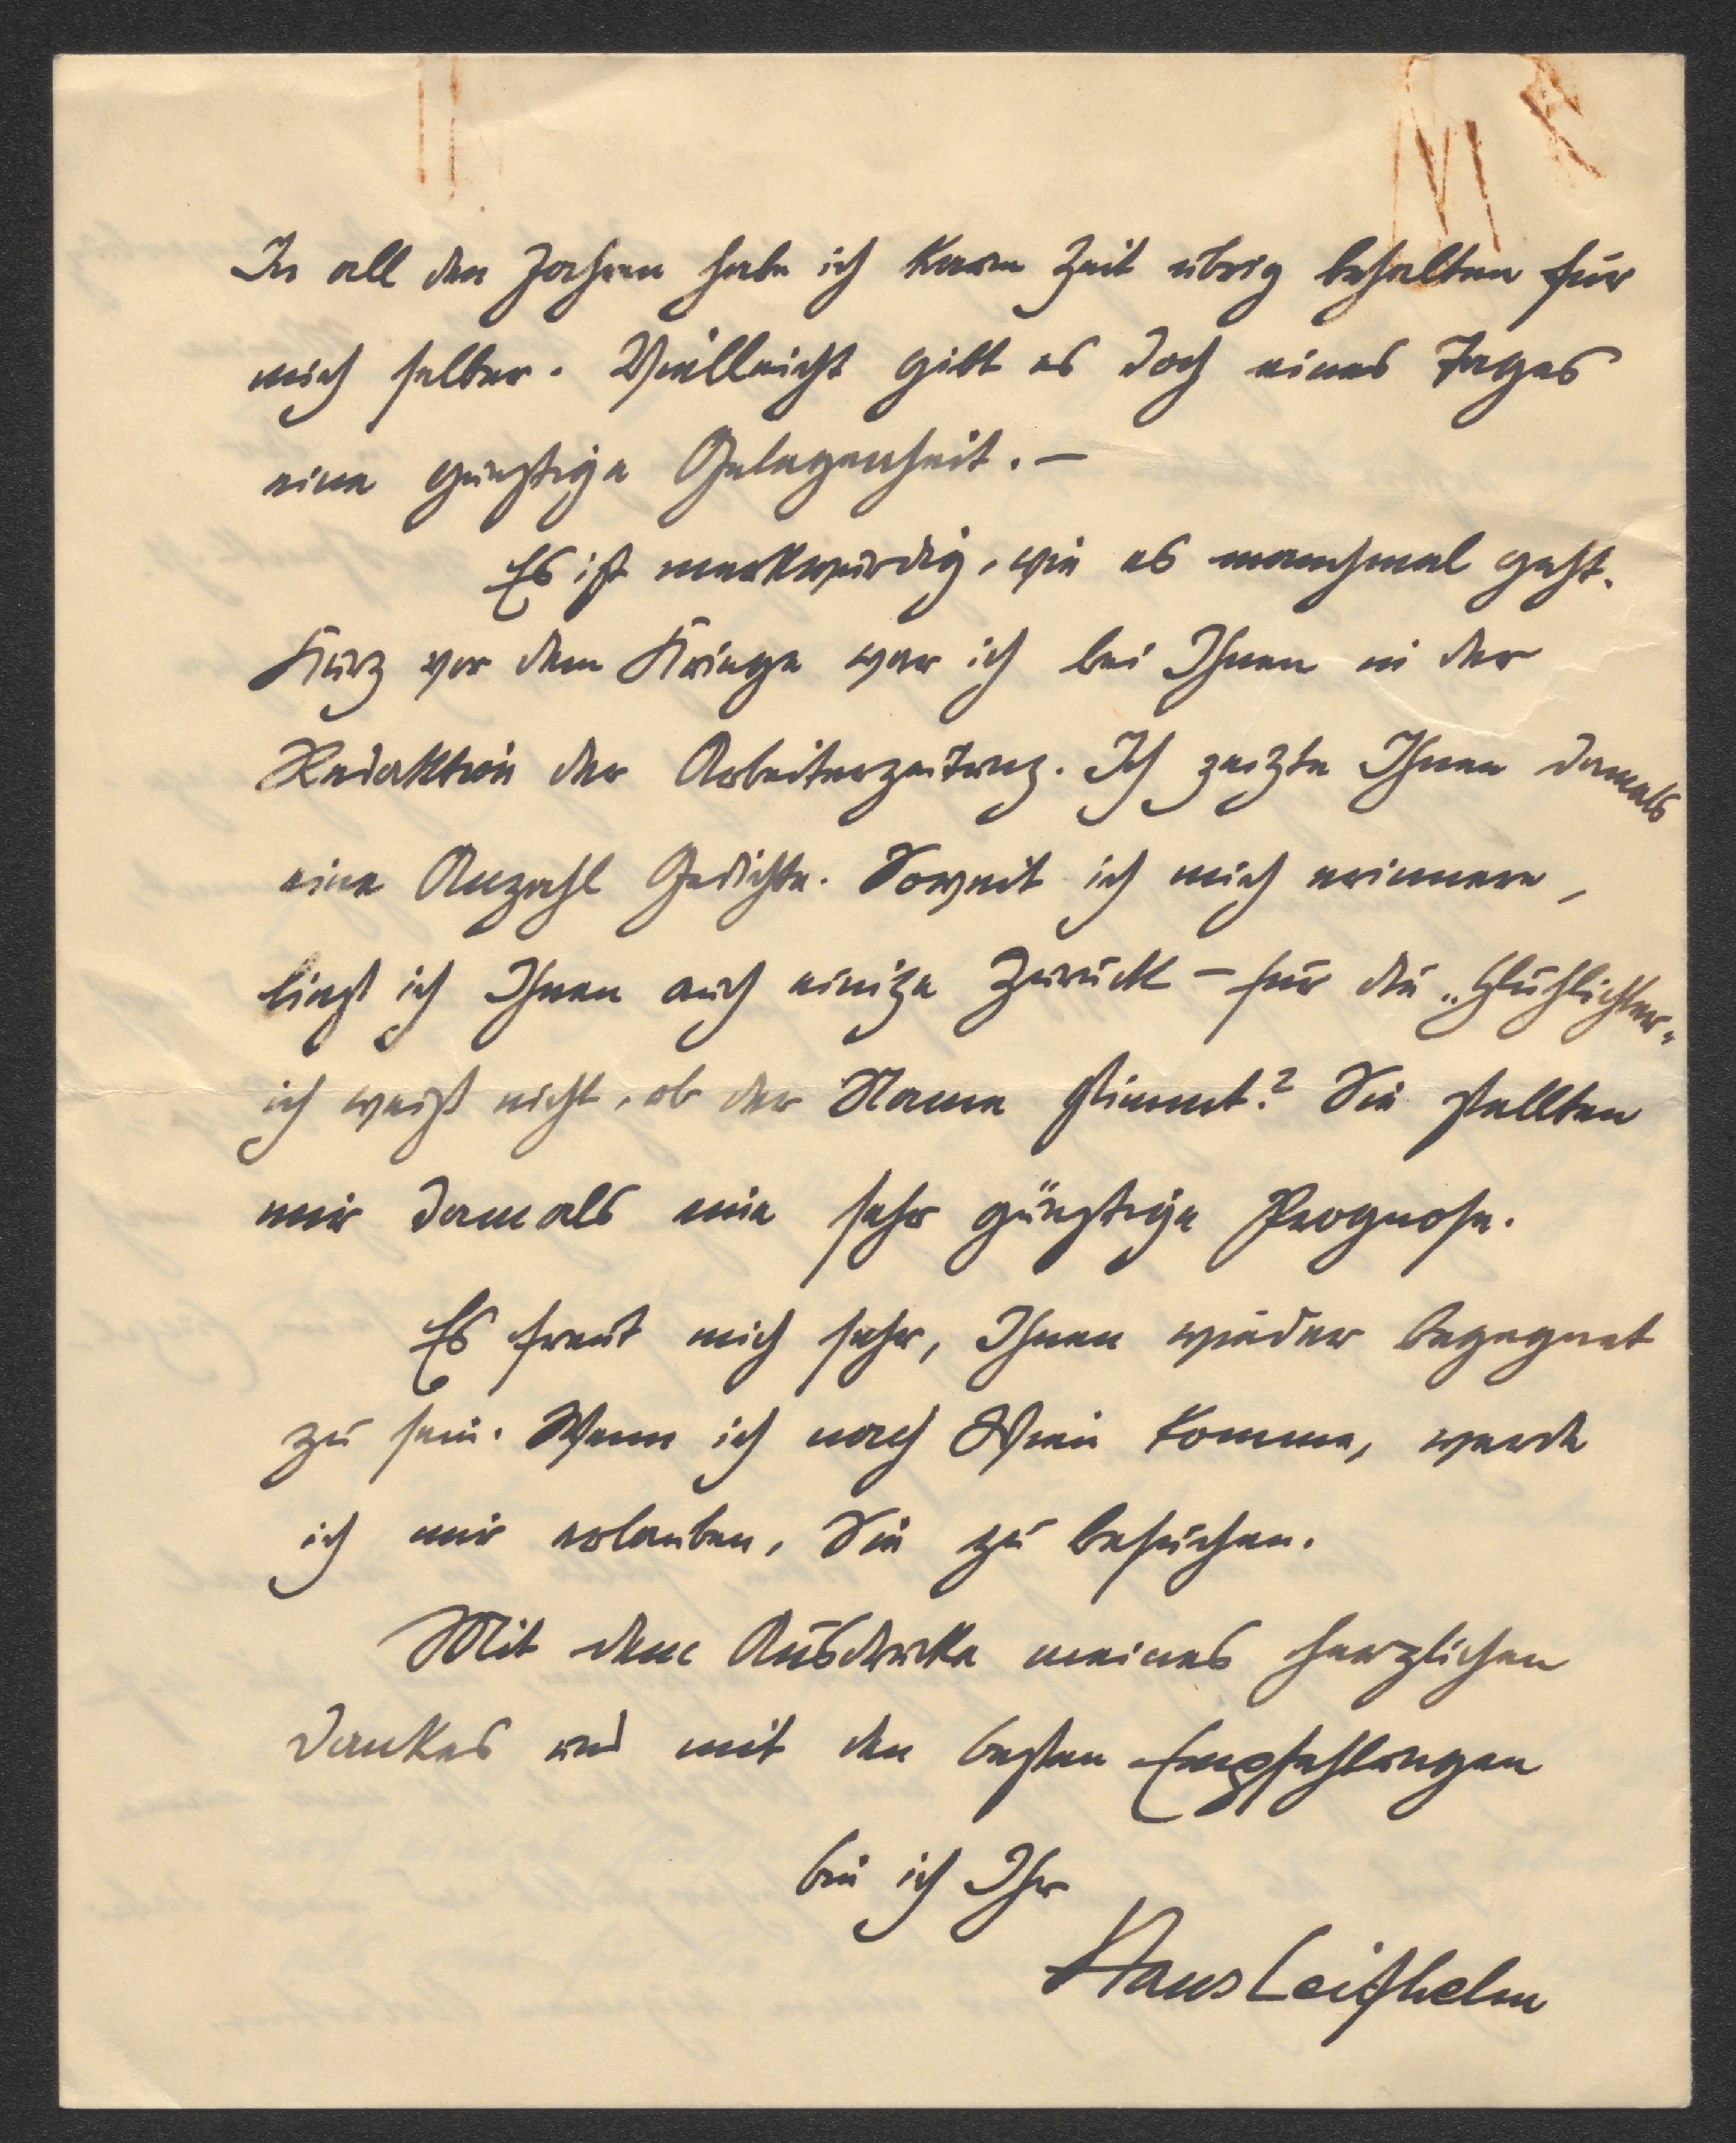 In all den Jahren habe ich kaum Zeit übrig behalten für
mich selber. Vielleicht gibt es doch eines Tages
eine günstige Gelegenheit. —
Es ist merkwürdig, wie es manchmal geht.
Kurz vor dem Kriege war ich bei Ihnen in der
Redaktion der Arbeiterzeitung. Ich zeigte Ihnen damals
eine Anzahl Gedichte. Soweit ich mich erinnere,
ließ ich Ihnen auch einige zurück – für die „Glühlichter“
ich weiß nicht, ob der Name stimmt? Sie stellten
mir damals eine sehr günstige Prognose.
Es freut mich sehr, Ihnen wieder begegnet
zu sein. Wenn ich nach Wien komme, werde
ich mir erlauben, Sie zu besuchen.
Mit dem Ausdrucke meines herzlichen
Dankes und mit den besten Empfehlungen
bin ich Ihr
Hans Leifhelm